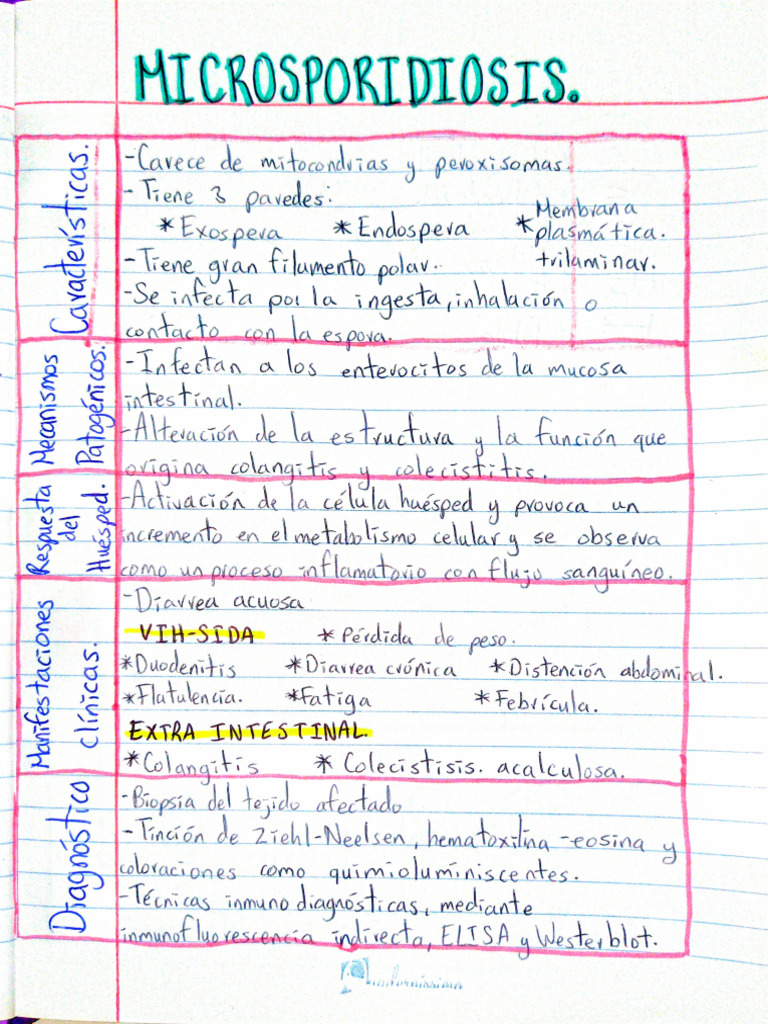 MICROSPORIDIOSIS.
Características.
-Carece de mitocondrias y peroxisomas.
-Tiene 3 paredes:
*Exospera *Endospera *Membrana
plasmática.
trilaminar.
-Tiene gran filamento polar.
-Se infecta por la ingesta, inhalación o
contacto con la espora.
Mecanismos
Patogénicos.
-Infectan a los enterocitos de la mucosa
intestinal.
-Alteración de la estructura y la función que
origina colangitis y colecistitis.
Respuesta
del
Huésped.
-Activación de la célula huésped y provoca un
incremento en el metabolismo celular y se observa
como un proceso inflamatorio con flujo sanguíneo.
Manifestaciones
clínicas.
-Diarrea acuosa
VIH-SIDA *Pérdida de peso.
*Duodenitis *Diarrea crónica *Distención abdominal.
*Flatulencia. *Fatiga *Febrícula.
EXTRA INTESTINAL.
*Colangitis *Colecistisis. acalculosa.
Diagnóstico
-Biopsia del tejido afectado
-Tinción de Ziehl-Neelsen, hematoxilina-eosina y
coloraciones como quimioluminiscentes.
-Técnicas inmuno diagnósticas, mediante
inmunofluorescencia indirecta, ELISA y Westerblot.